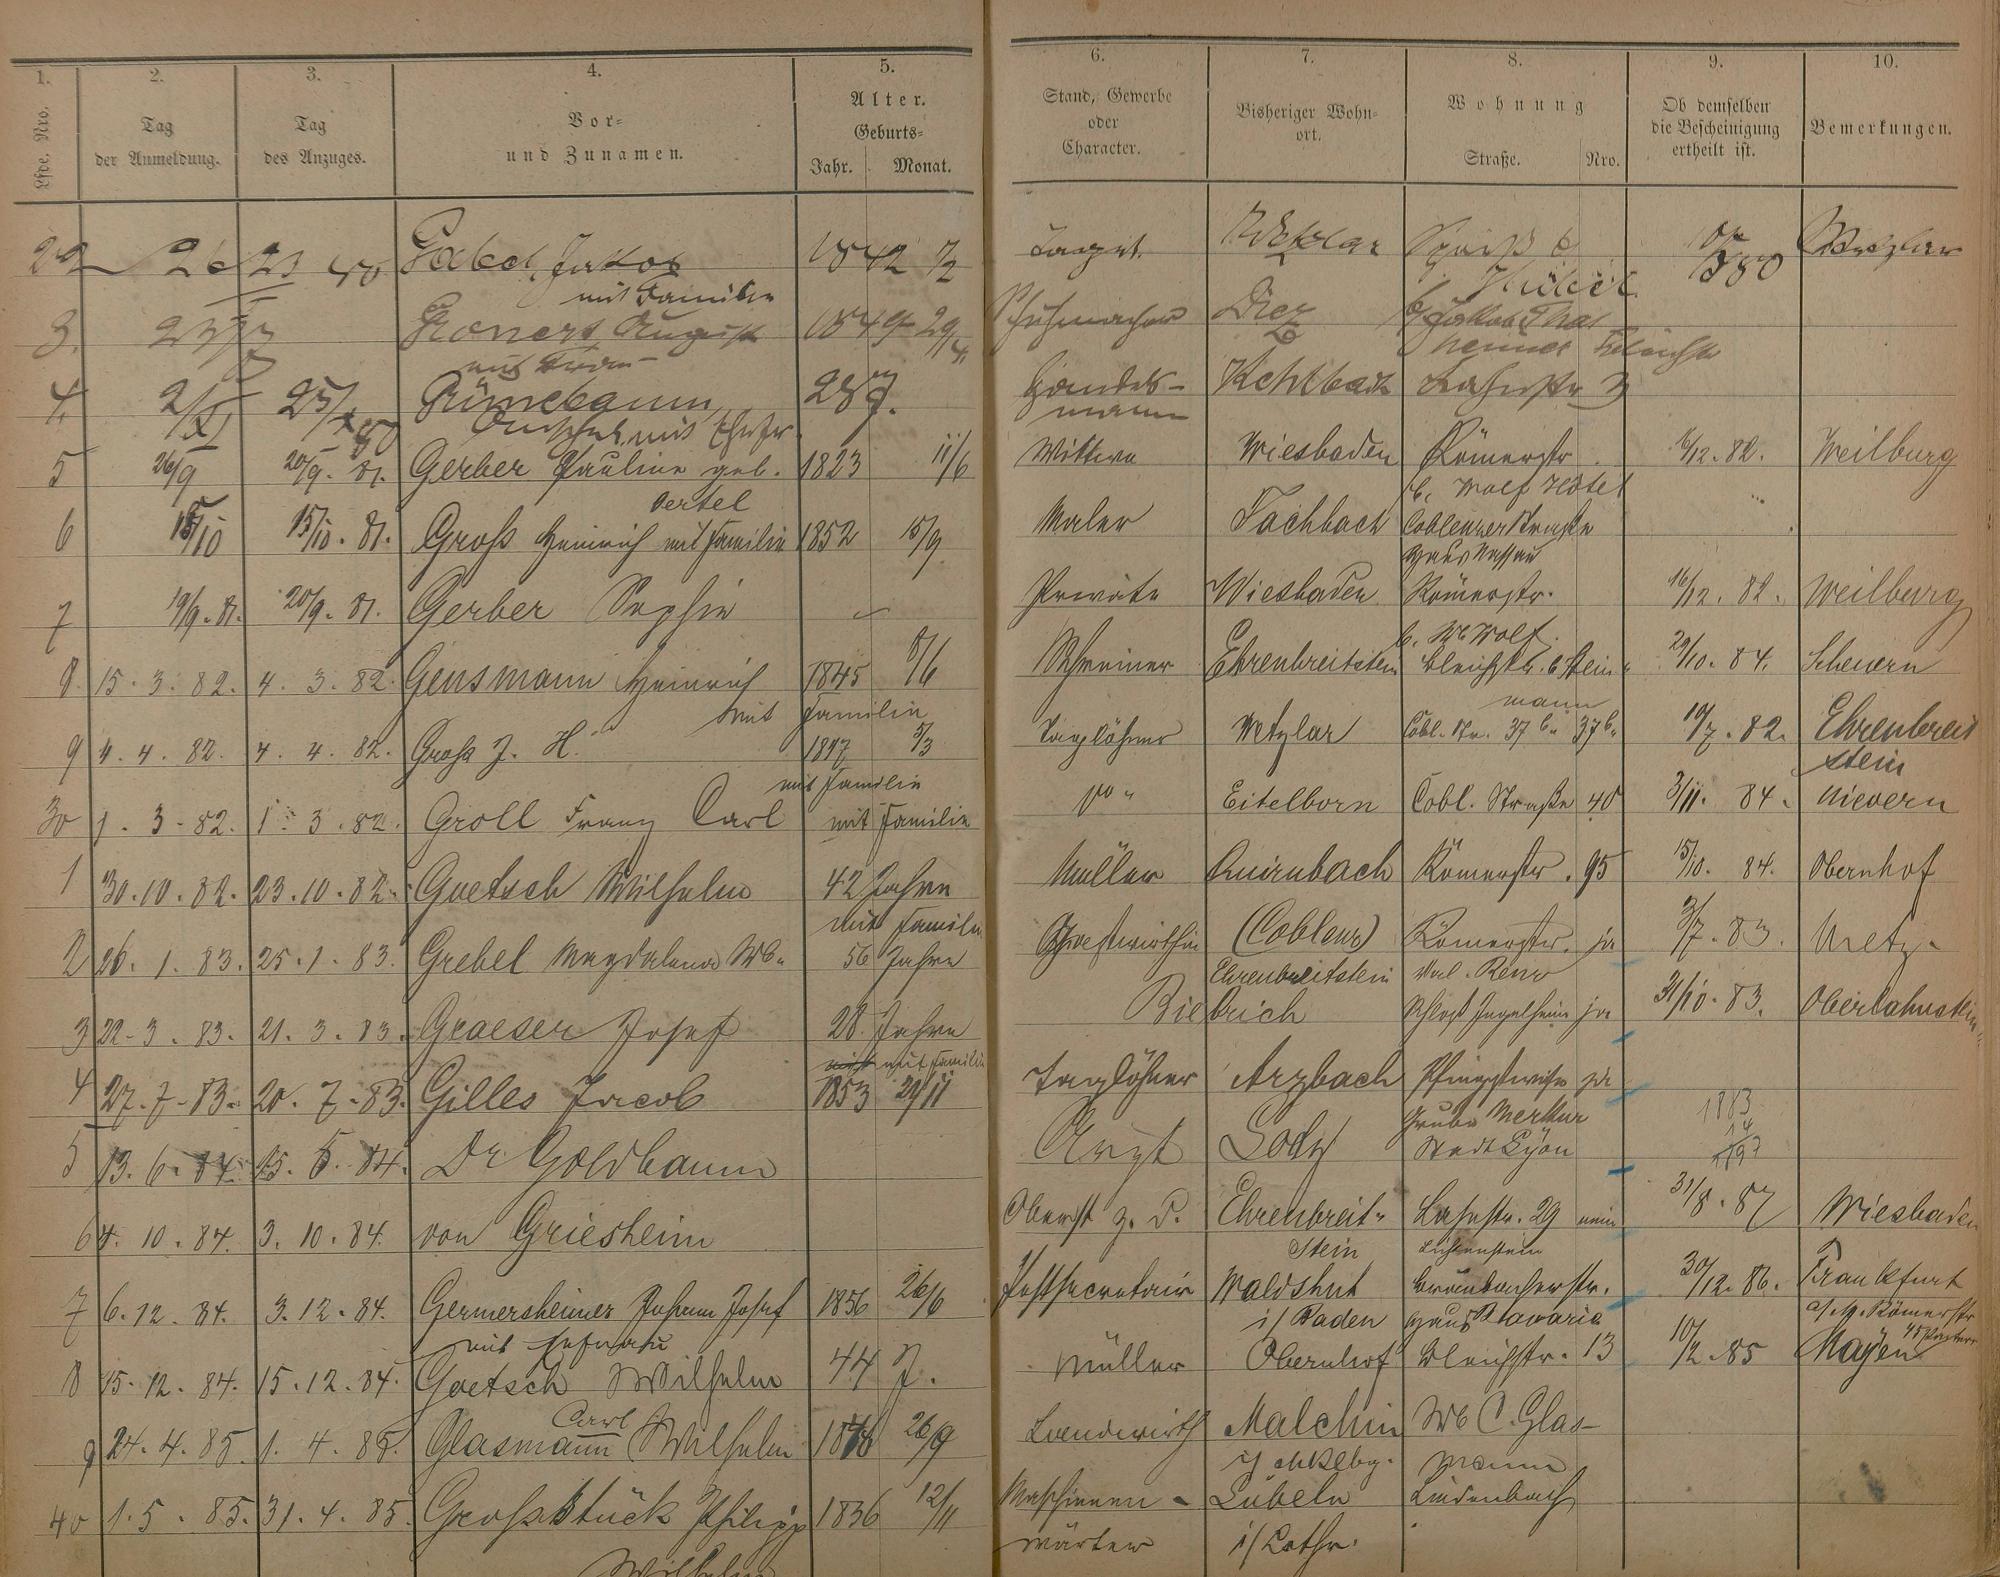 1. 2. 3. 4. 5. 6. 7. 8. 9. 10.
Lfde. Nro.
Tag der Anmeldung.
Tag des Anzuges.
Vor- und Zunamen.
Alter.
Geburts-
Jahr. Monat.
Stand, Gewerbe oder Character.
Bisheriger Wohnort.
Wohnung
Straße. Nro.
Ob demselben die Bescheinigung ertheilt ist.
Bemerkungen.
Gabel, Jakob 1842 Wetzlar Wetzlar
mit Familie
3. August 1849 Schuhmacher Diez
4. Grünebaum, 28 J. Handels- Kehlbach Lahnstr 3
mit mann
5 26/9 20/9. 81. Gerber Pauline geb. 1823 11/6 Wittwe Wiesbaden Römerstr. 16/12. 82. Weilburg
Oertel b. Wolf Hôtel
6 15/10 15/10. 81. Groß Heinrich mit Familie 1852 15/9 Maler Fachbach Coblenzer Straße
Haus Nassau
7 19/9. 81. 20/9. 81. Gerber Sophie Private Wiesbaden Römerstr. 16/12. 82. Weilburg
b. Wb Wolf.
8 15. 3. 82. 4. 3. 82. Gensmann Heinrich 1845 8/6 Schreiner Ehrenbreitstein Bleichstr. b. Stein- 29/10. 84. Scheuern
mit Familie mann
9 4. 4. 82. 4. 4. 82. Groß J. H. 1817 3/3 Taglöhner Wetzlar Cobl. Str. 37 b. 37 b. 19/7. 82. Ehrenbreit
mit Familie stein
30 1. 3. 82. 1. 3. 82. Groll Franz Carl mit Familie Eitelborn Cobl. Straße 40 3/11. 84. Nievern
1 30. 10. 82. 23. 10. 82. Goetsch Wilhelm 42 Jahre Müller Quirnbach Römerstr. 95 15/10. 84. Obernhof
mit Familie
2 26. 1. 83. 25. 1. 83. Grebel Magdalena Wb. 56 Jahre Gastwirthin (Coblenz) Römerstr. ja 3/7. 83. Metz.
Ehrenbreitstein
3 22. 3. 83. 21. 3. 83. Graeser Josef 28 Jahre Biebrich Schloß Ingelheim ja 31/10. 83. Oberlahnstein
mit Familie
4 27. 7. 83. 20. 7. 83. Gilles Jacob 1853 29/11 Taglöhner Arzbach Pfingstwiese ja
Grube Merkur 1883
5 13. 6. 84. 15. 5. 84. Dr Goldbaum Arzt Lodz Stadt Lyon
6 4. 10. 84. 3. 10. 84. von Griesheim Oberst z. D. Ehrenbreit- Lahnstr. 29 nein 31/8. 87 Wiesbaden
stein Lichtenstein
7 6. 12. 84. 3. 12. 84. Germersheimer Johann Josef 1856 26/6 Postsecretair Waldshut Grünbacherstr. 30/12. 86. Frankfurt
mit Ehefrau i/Baden Haus Bavaria a/M. Römerstr
8 15. 12. 84. 15. 12. 84. Goetsch Wilhelm 44 J. Müller Obernhof Bleichstr. 13 10/2. 85 Mayen
Carl
9 24. 4. 85. 1. 4. 85. Glasmann Wilhelm 26/9 Landwirth Malchin Wb C. Glas-
i/ Mklbg. mann
40 1. 5. 85. 31. 4. 85. Großstück Philipp 1836 12/11 Maschinen- Lübeln Lindenbach
Wilhelm wärter i/Lothr.